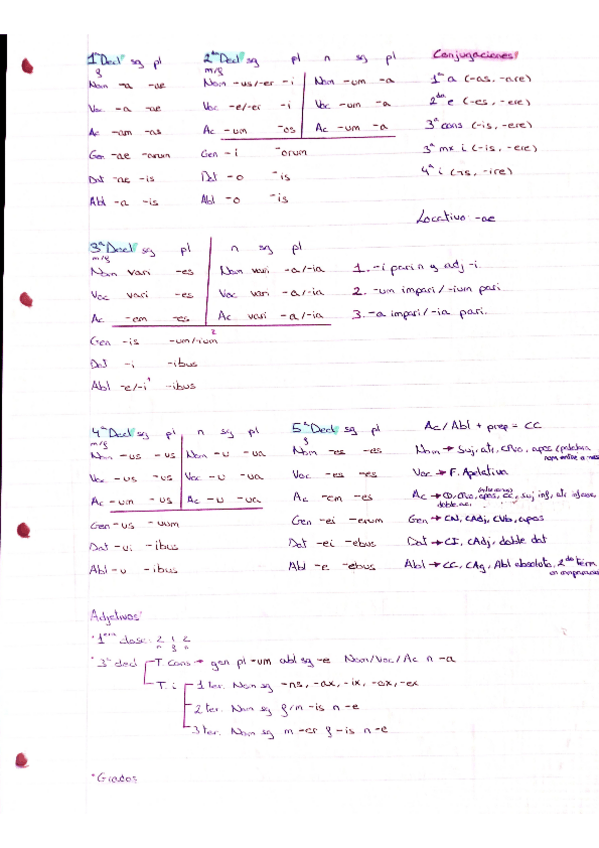 1ª Decl sg pl
f
Nom -a -ae
Voc -a -ae
Ac -am -as
Gen -ae -arum
Dat -ae -is
Abl -a -is
2ª Decl sg pl n sg pl
m/f
Nom -us/-er -i Nom -um -a
Voc -e/-er -i Voc -um -a
Ac -um -os Ac -um -a
Gen -i -orum
Dat -o -is
Abl -o -is
Conjugaciones:
1ª a (-as, -are)
2ª e (-es, -ere)
3ª cons (-is, -ere)
3ª mx i (-is, -ere)
4ª i (-is, -ire)
Locativo -ae
3ª Decl sg pl n sg pl
m/f
Nom vari -es Nom vari -a/-ia
Voc vari -es Voc vari -a/-ia
Ac -em -es Ac vari -a/-ia
Gen -is -um/-ium 2
Dat -i -ibus
Abl -e/-i 1 -ibus
1. -i pari n y adj -i.
2. -um impari/-ium pari
3. -a impari/-ia pari.
4ª Decl sg pl n sg pl
m/f
Nom -us -us Nom -u -ua
Voc -us -us Voc -u -ua
Ac -um -us Ac -u -ua
Gen -us -uum
Dat -ui -ibus
Abl -u -ibus
5ª Decl sg pl
f
Nom -es -es
Voc -es -es
Ac -em -es
Gen -ei -erum
Dat -ei -ebus
Abl -e -ebus
Ac/Abl + prep = CC
Nom → Suj, atr, CPvo, apos
Voc → F. Apelativa
Ac → CD, CPvo, apos, CC, suj inf, atr
doble ac.
Gen → CN, CAdj, CVb, apos
Dat → CI, CAdj, doble dat
Abl → CC, CAg, Abl absoluto, 2do térm.
Adjetivos:
·1era clase: 2 1 2
m f n
·3ª decl T. cons → gen pl -um abl sg -e Nom/Voc/Ac n -a
T. i 1 ter. Nom sg -ns, -ax, -ix, -ox, -ex
2 ter. Nom sg f/m -is n -e
3 ter. Nom sg m -er f -is n -e
·Grados